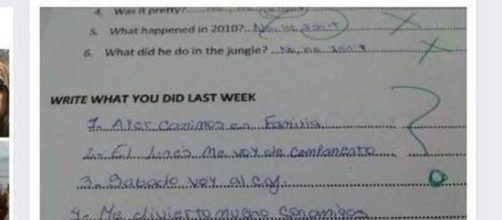 4. Was it pretty?
5. What happened in 2010? No, he isn't
6. What did he do in the jungle? No, he isn't
WRITE WHAT YOU DID LAST WEEK
1- Ayer comimos en Familia
2- El lunes me voy de campamento
3- Sabado voy al
4- Me divierto mucho